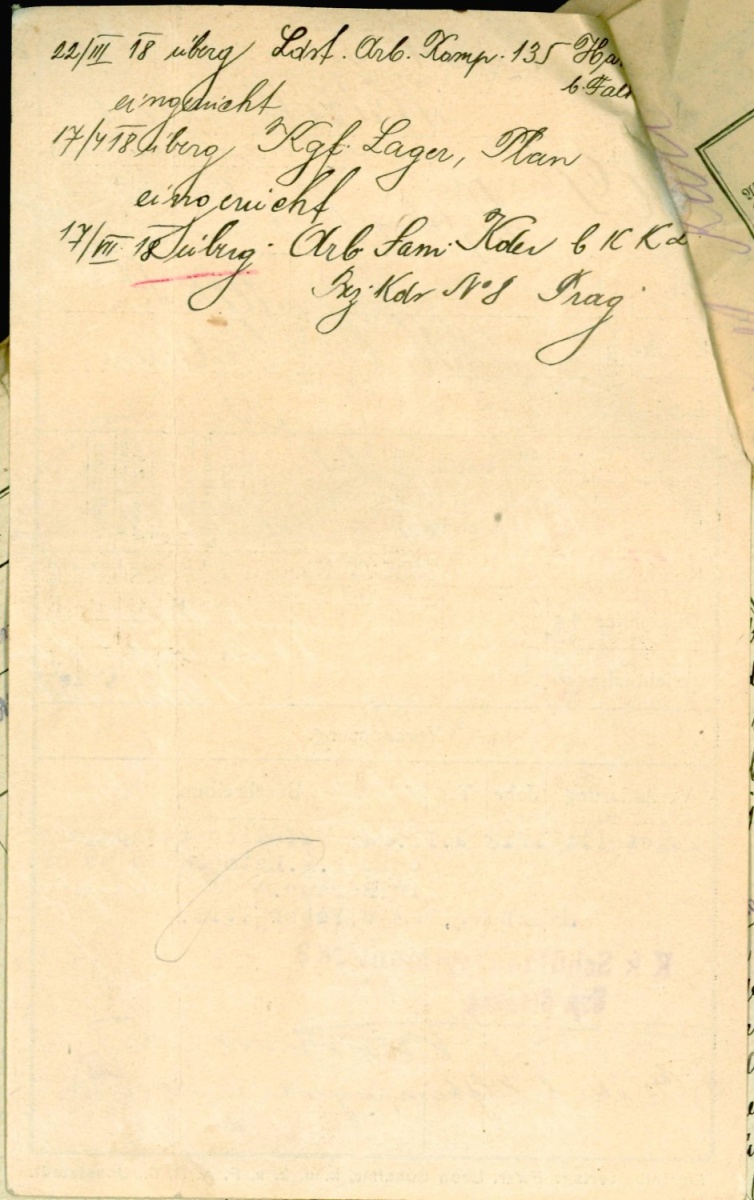 22/III 18 überg Ldst. Arb. Komp. 135
b. Falk
eingereicht
17/4 18 überg Kgf. Lager, Plan
eingereicht
17/VII 18 überg. Arb Sam. Kder b K K L
Bez. Kdr No 8 Prag